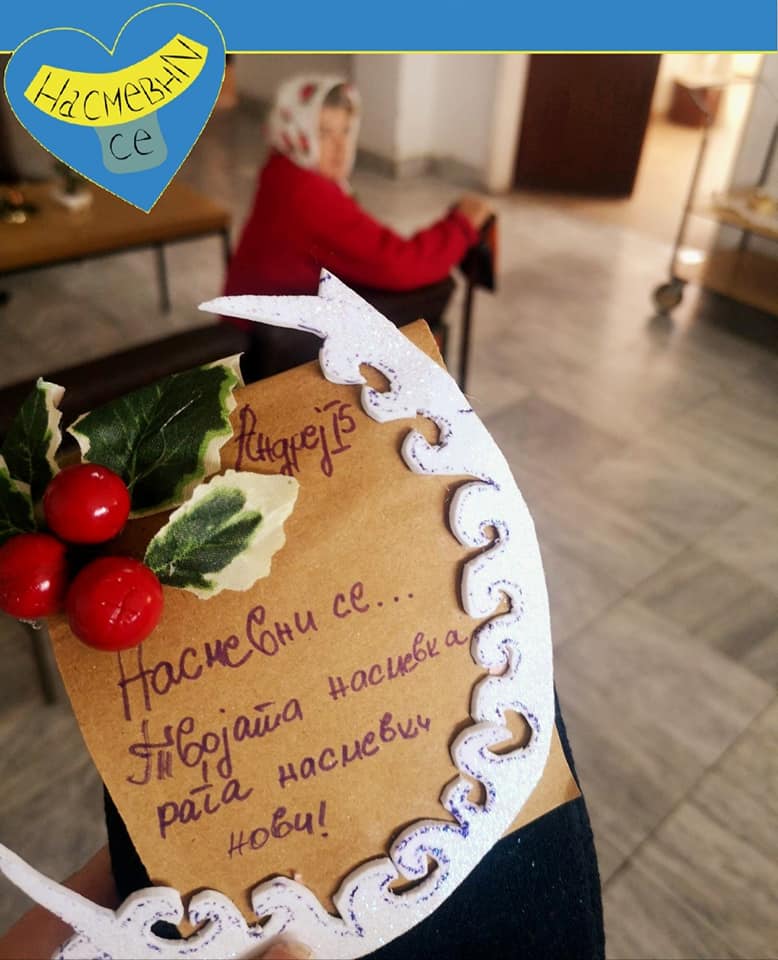 Насмевни
се
Андреј I5
Насмевни се...
Твојата насмевка
раѓа насмевки
нови!